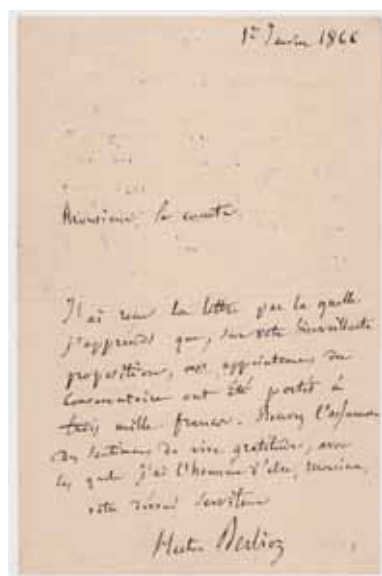 1er Janvier 1866
Monsieur le comte
J'ai reçu la lettre par la quelle
j'apprends que, sur votre bienveillante
proposition, mes appointemens du
Conservatoire ont été portés à
trois mille francs. Recevez l'assurance
des sentimens de vive gratitude, avec
les quels j'ai l'honneur d'être, monsieur,
votre dévoué serviteur
Hector Berlioz